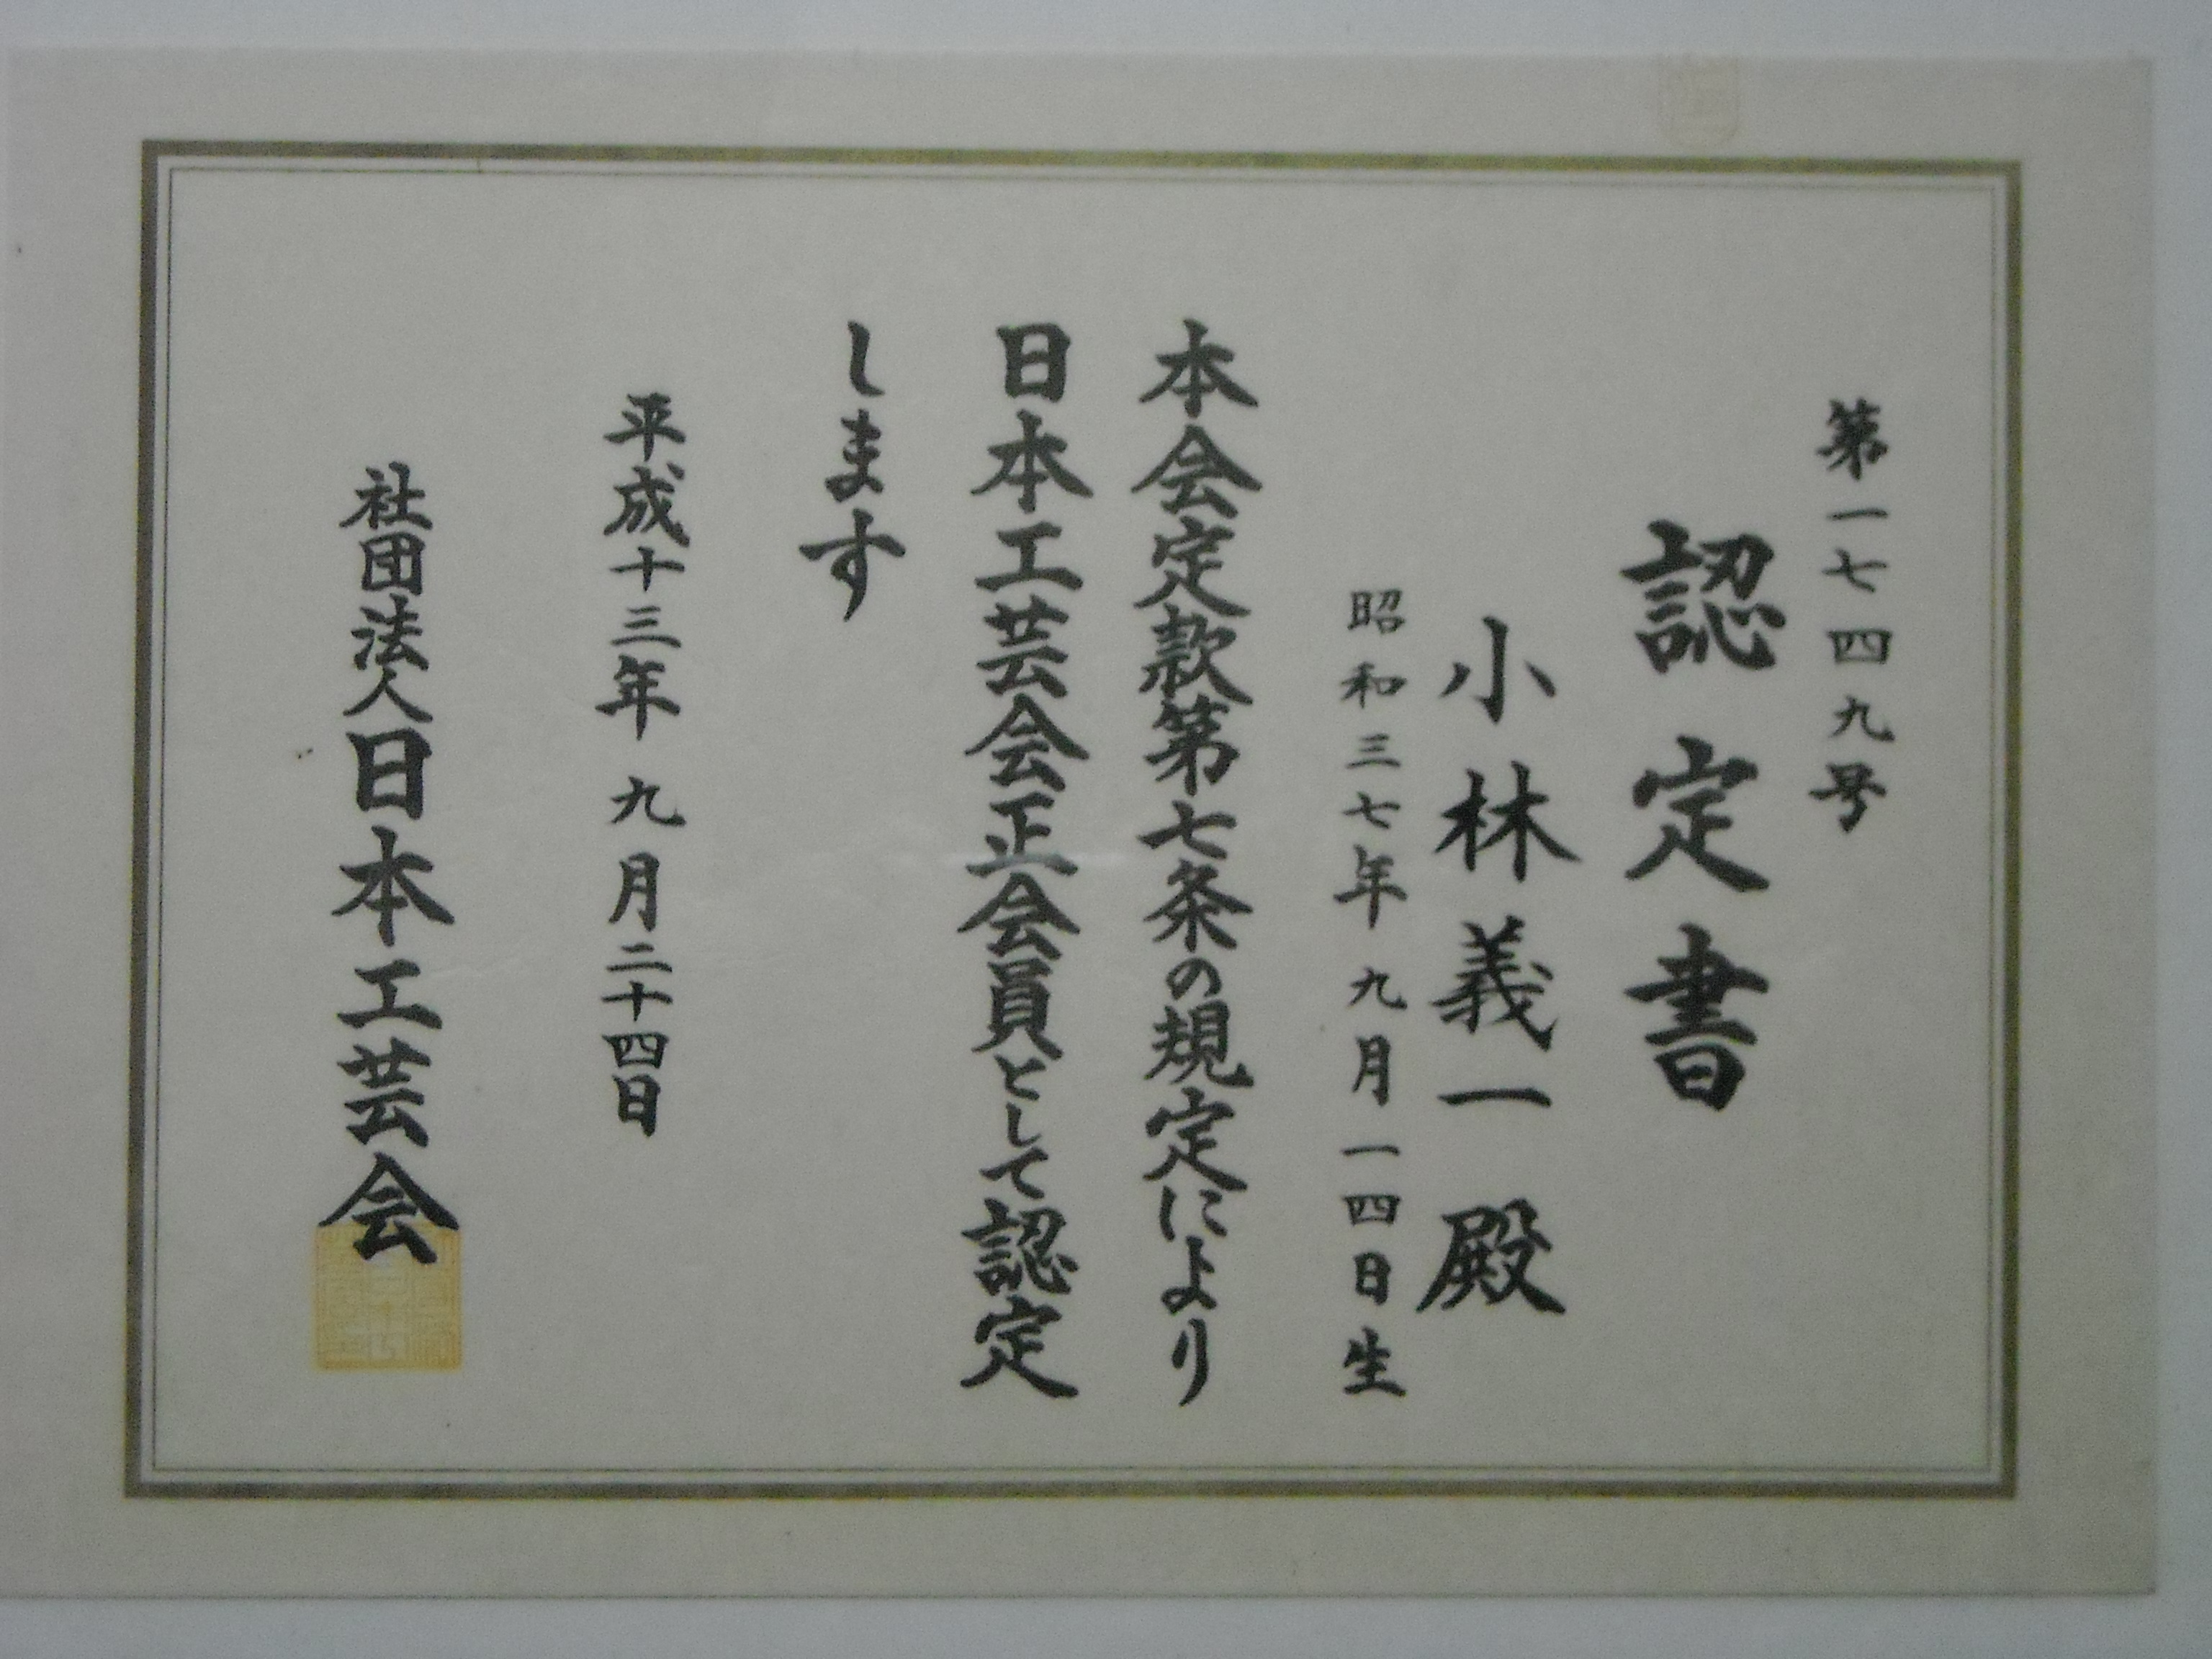 第一七四九号
認定書
小林義一殿
昭和三七年九月一四日生
本会定款第七条の規定により
日本工芸会正会員として認定
します
平成十三年九月二十四日
社団法人日本工芸会